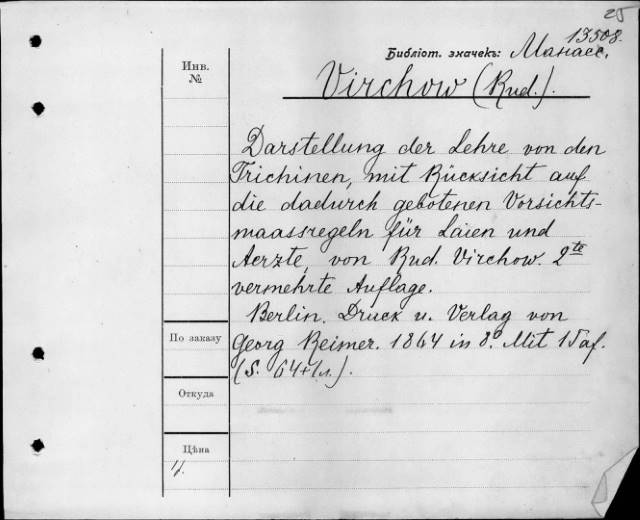 25
13508.
Библіот. значекъ: Манасс.
Инв.
№
Virchow (Rud.).
Darstellung der Lehre von den
Trichinen, mit Rücksicht auf
die dadurch gebotenen Vorsichts-
maassregeln für Laien und
Aerzte, von Rud. Virchow. 2te
vermehrte Auflage.
Berlin. Druck u. Verlag von
Georg Reimer. 1864 in 8º. Mit 1 Taf.
(S. 64+1л.).
По заказу
Откуда
Цѣна